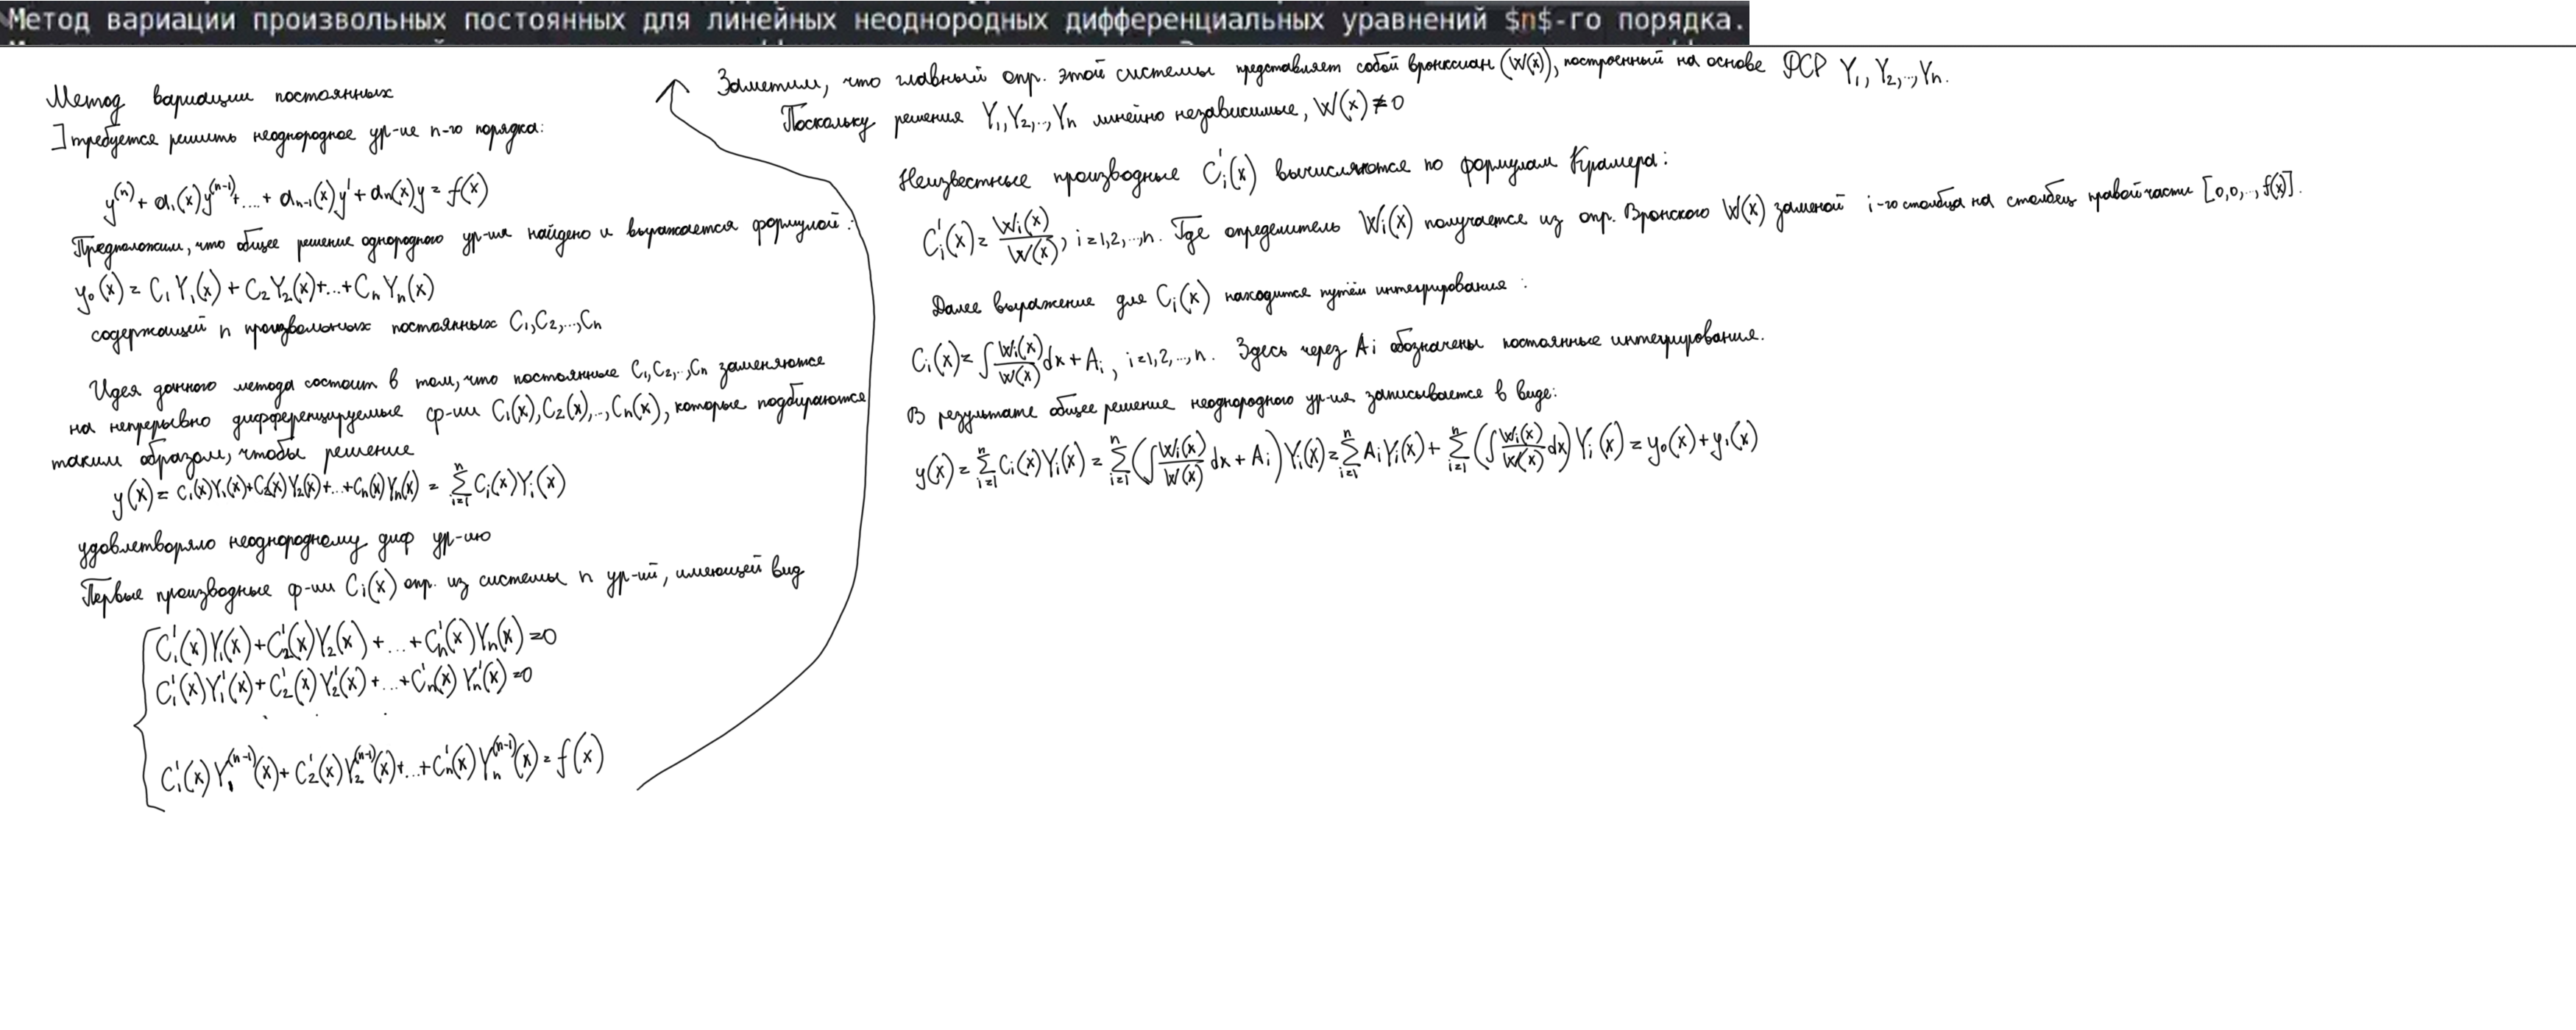 Метод вариации произвольных постоянных для линейных неоднородных дифференциальных уравнений $n$-го порядка.
Метод вариации постоянных
]требуется решить неоднородное ур-ие n-го порядка:
y⁽ⁿ⁾ + a₁(x)y⁽ⁿ⁻¹⁾ + .... + aₙ₋₁(x)y' + aₙ(x)y = f(x)
Предположим, что общее решение однородного ур-ия найдено и выражается формулой:
y₀(x) = C₁Y₁(x) + C₂Y₂(x)+...+CₙYₙ(x)
содержащей n произвольных постоянных C₁,C₂,...,Cₙ
Идея данного метода состоит в том, что постоянные C₁,C₂,..,Cₙ заменяются
на непрерывно дифференцируемые ф-ии C₁(x),C₂(x),..,Cₙ(x), которые подбираются
таким образом, чтобы решение
y(x) = C₁(x)Y₁(x)+C₂(x)Y₂(x)+...+Cₙ(x)Yₙ(x) = ∑ⁿᵢ₌₁ Cᵢ(x)Yᵢ(x)
удовлетворяло неоднородному диф ур-ию
Первые производные ф-ии Cᵢ(x) опр. из системы n ур-ий, имеющей вид
{ C₁'(x)Y₁(x)+C₂'(x)Y₂(x) + ... + Cₙ'(x)Yₙ(x) = 0
C₁'(x)Y₁'(x)+C₂'(x)Y₂'(x) +...+Cₙ'(x)Yₙ'(x) = 0
. . .
C₁'(x)Y₁⁽ⁿ⁻¹⁾(x)+ C₂'(x)Y₂⁽ⁿ⁻¹⁾(x)+...+Cₙ'(x)Yₙ⁽ⁿ⁻¹⁾(x) = f(x)
Заметим, что главный опр. этой системы представляет собой вронксиан (W(x)), построенный на основе ФСР Y₁, Y₂,..,Yₙ.
Поскольку решения Y₁,Y₂,..,Yₙ линейно независимые, W(x) ≠ 0
Неизвестные производные Cᵢ'(x) вычисляются по формулам Крамера:
Cᵢ'(x) = Wᵢ(x)/W(x), i=1,2,..,n. Где определитель Wᵢ(x) получается из опр. Вронского W(x) заменой i-го столбца на столбец правой части [0,0,..,f(x)].
Далее выражение для Cᵢ(x) находится путём интегрирования :
Cᵢ(x) = ∫Wᵢ(x)/W(x) dx + Aᵢ , i=1,2,..,n. Здесь через Aᵢ обозначены постоянные интегрирования.
В результате общее решение неоднородного ур-ия записывается в виде:
y(x) = ∑ⁿᵢ₌₁ Cᵢ(x)Yᵢ(x) = ∑ⁿᵢ₌₁ (∫Wᵢ(x)/W(x) dx + Aᵢ)Yᵢ(x) = ∑ⁿᵢ₌₁ AᵢYᵢ(x) + ∑ⁿᵢ₌₁ (∫Wᵢ(x)/W(x) dx)Yᵢ(x) = y₀(x)+y₁(x)